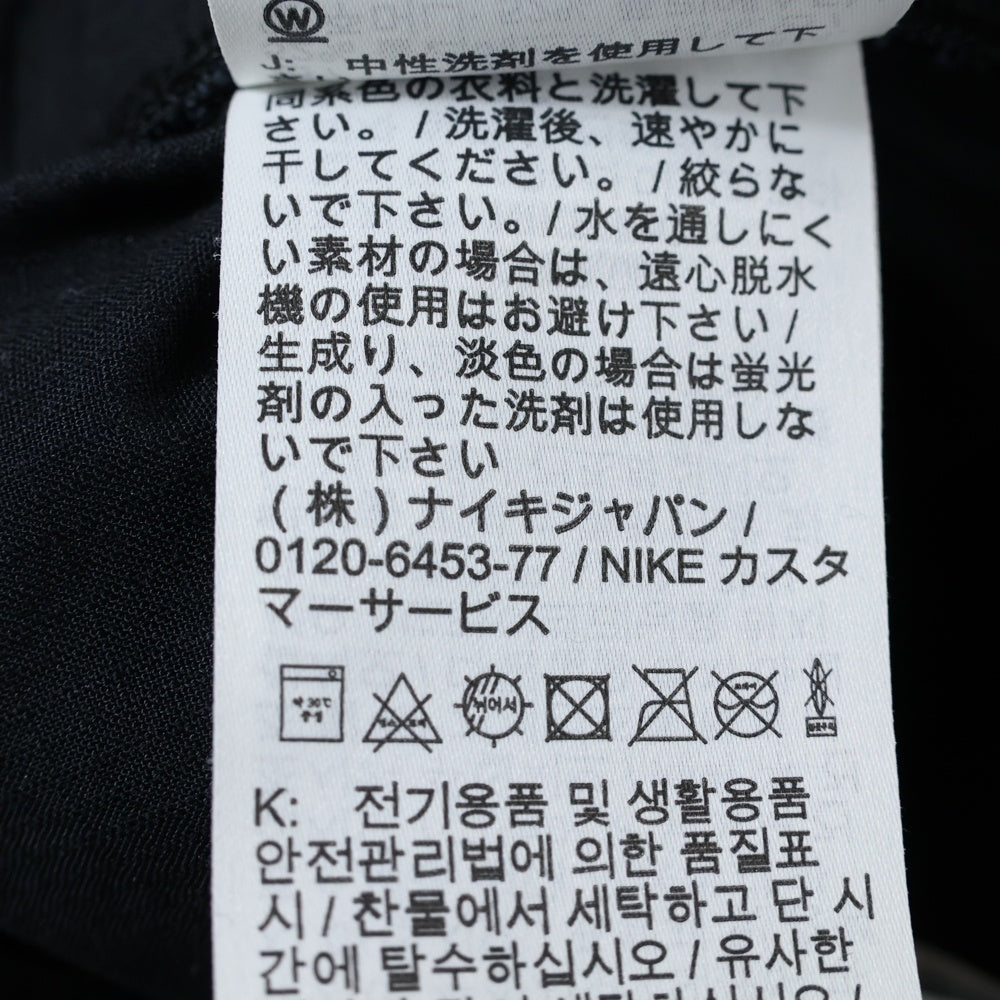 W
J: 中性洗剤を使用して下
同素色の衣料と洗濯して下
さい。 / 洗濯後、速やかに
干してください。 / 絞らな
いで下さい。/ 水を通しにく
い素材の場合は、遠心脱水
機の使用はお避け下さい /
生成り、淡色の場合は蛍光
剤の入った洗剤は使用しな
いで下さい
(株)ナイキジャパン /
0120-6453-77 / NIKE カスタ
マーサービス
약 30℃ 중성 뉘어서
K: 전기용품 및 생활용품
안전관리법에 의한 품질표
시 / 찬물에서 세탁하고 단 시
간에 탈수하십시오 / 유사한